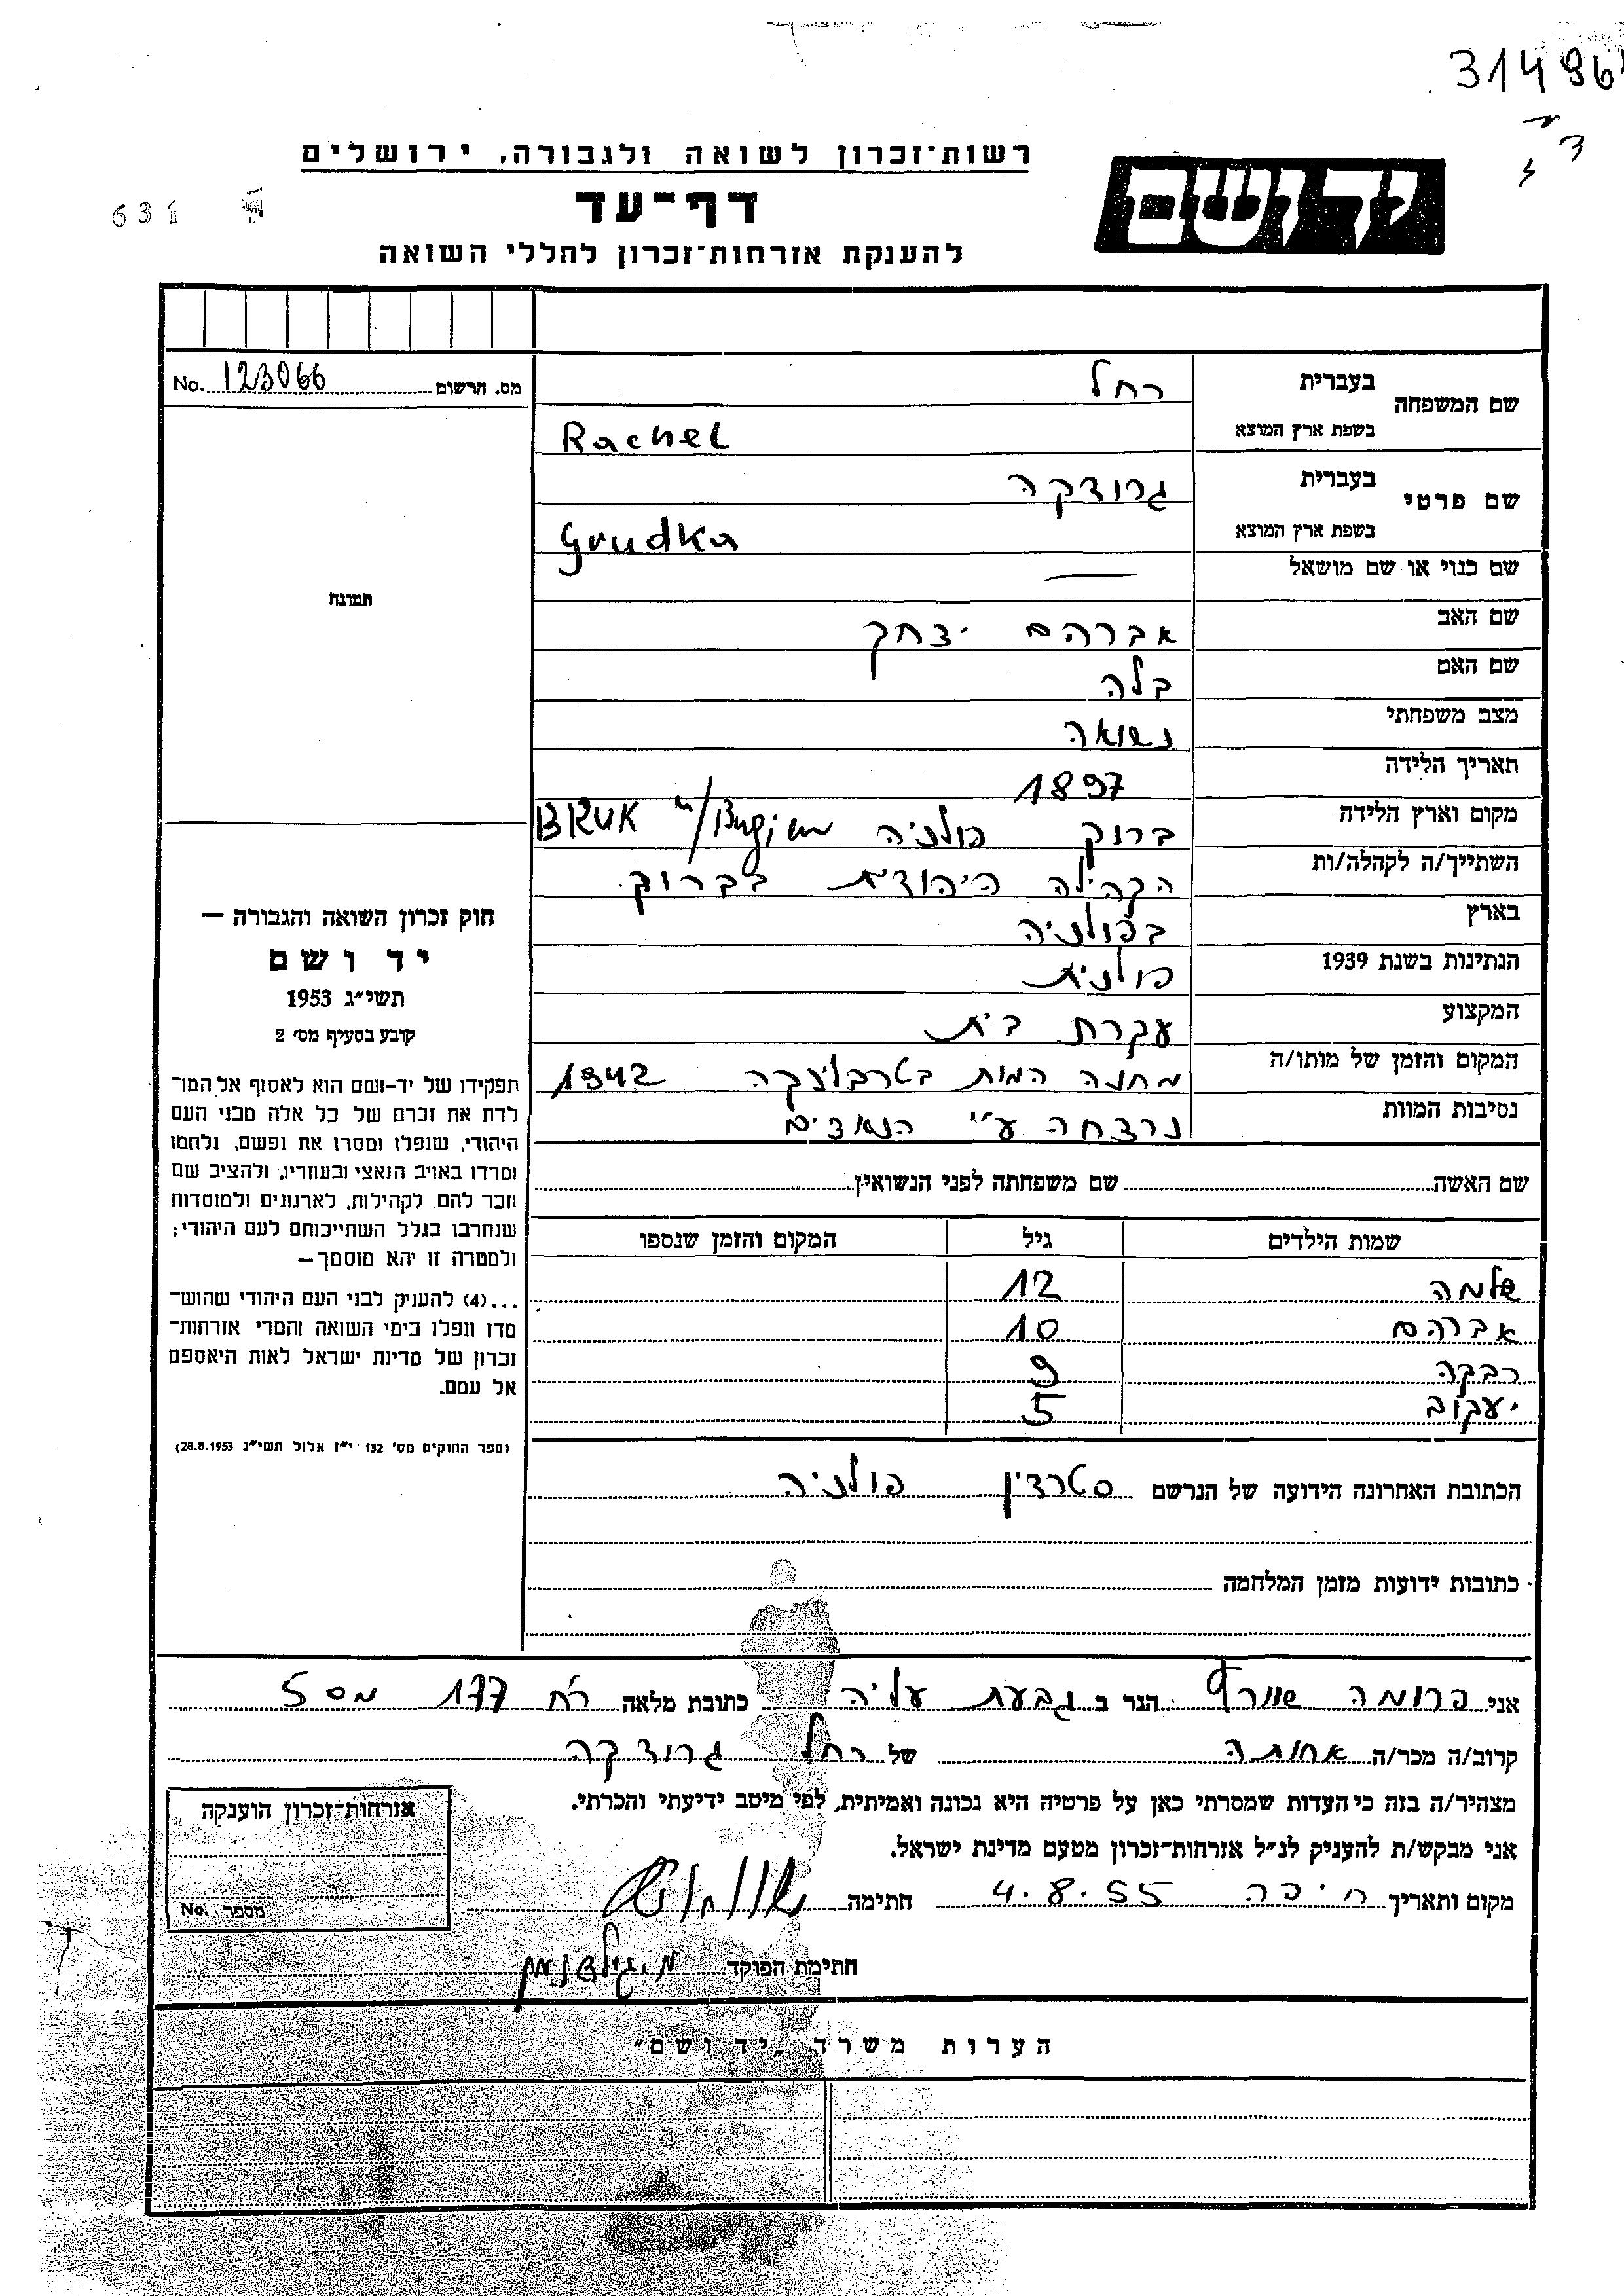 314964
רשות־זכרון לשואה ולגבורה, ירושלים
יד ושם
דף־עד
631
להענקת אזרחות־זכרון לחללי השואה
מס. הרשום 123066 No.
שם המשפחה בעברית רחל
בשפת ארץ המוצא Rachel
שם פרטי בעברית גרודקה
בשפת ארץ המוצא Grudka
שם כנוי או שם מושאל —
תמונה
שם האב אברהם יצחק
שם האם בלה
מצב משפחתי נשואה
תאריך הלידה 1897
מקום וארץ הלידה ברוק פולניה BRUK n/Bugiem
השתייך/ה לקהלה/ות הקהילה היהודית בברוק.
בארץ בפולניה
הנתינות בשנת 1939 פולנית
המקצוע עקרת בית
המקום והזמן של מותו/ה מחנה המות בטרבלינקה 1942
נסיבות המוות נרצחה ע״י הנאצים
חוק זכרון השואה והגבורה —
יד ושם
תשי״ג 1953
קובע בסעיף מס׳ 2
תפקידו של יד־ושם הוא לאסוף אל המו־
לדת את זכרם של כל אלה מבני העם
היהודי, שנפלו ומסרו את נפשם, נלחמו
ומרדו באויב הנאצי ובעוזריו, ולהציב שם
וזכר להם, לקהילות, לארגונים ולמוסדות
שנחרבו בגלל השתייכותם לעם היהודי;
ולמטרה זו יהא מוסמך—
...(4) להעניק לבני העם היהודי שהוש־
מדו ונפלו בימי השואה והמרי אזרחות־
זכרון של מדינת ישראל לאות היאספם
אל עמם.
(ספר החוקים מס׳ 132 י״ז אלול תשי״ג 28.8.1953)
שם האשה שם משפחתה לפני הנשואין
שמות הילדים גיל המקום והזמן שנספו
שלמה 12
אברהם 10
רבקה 9
יעקוב 5
הכתובת האחרונה הידועה של הנרשם סטרדין פולניה
כתובות ידועות מזמן המלחמה
אני פרומה שוורץ הגר ב גבעת עליה כתובת מלאה רח 177 מס 5
קרוב/ה מכר/ה אחותה של רחל גרודקה
מצהיר/ה בזה כי העדות שמסרתי כאן על פרטיה היא נכונה ואמיתית, לפי מיטב ידיעתי והכרתי.
אני מבקש/ת להעניק לנ״ל אזרחות־זכרון מטעם מדינת ישראל.
מקום ותאריך חיפה 4.8.55 חתימה
חתימת הפוקד
אזרחות־זכרון הוענקה
מספר No.
הערות משרד „יד ושם״